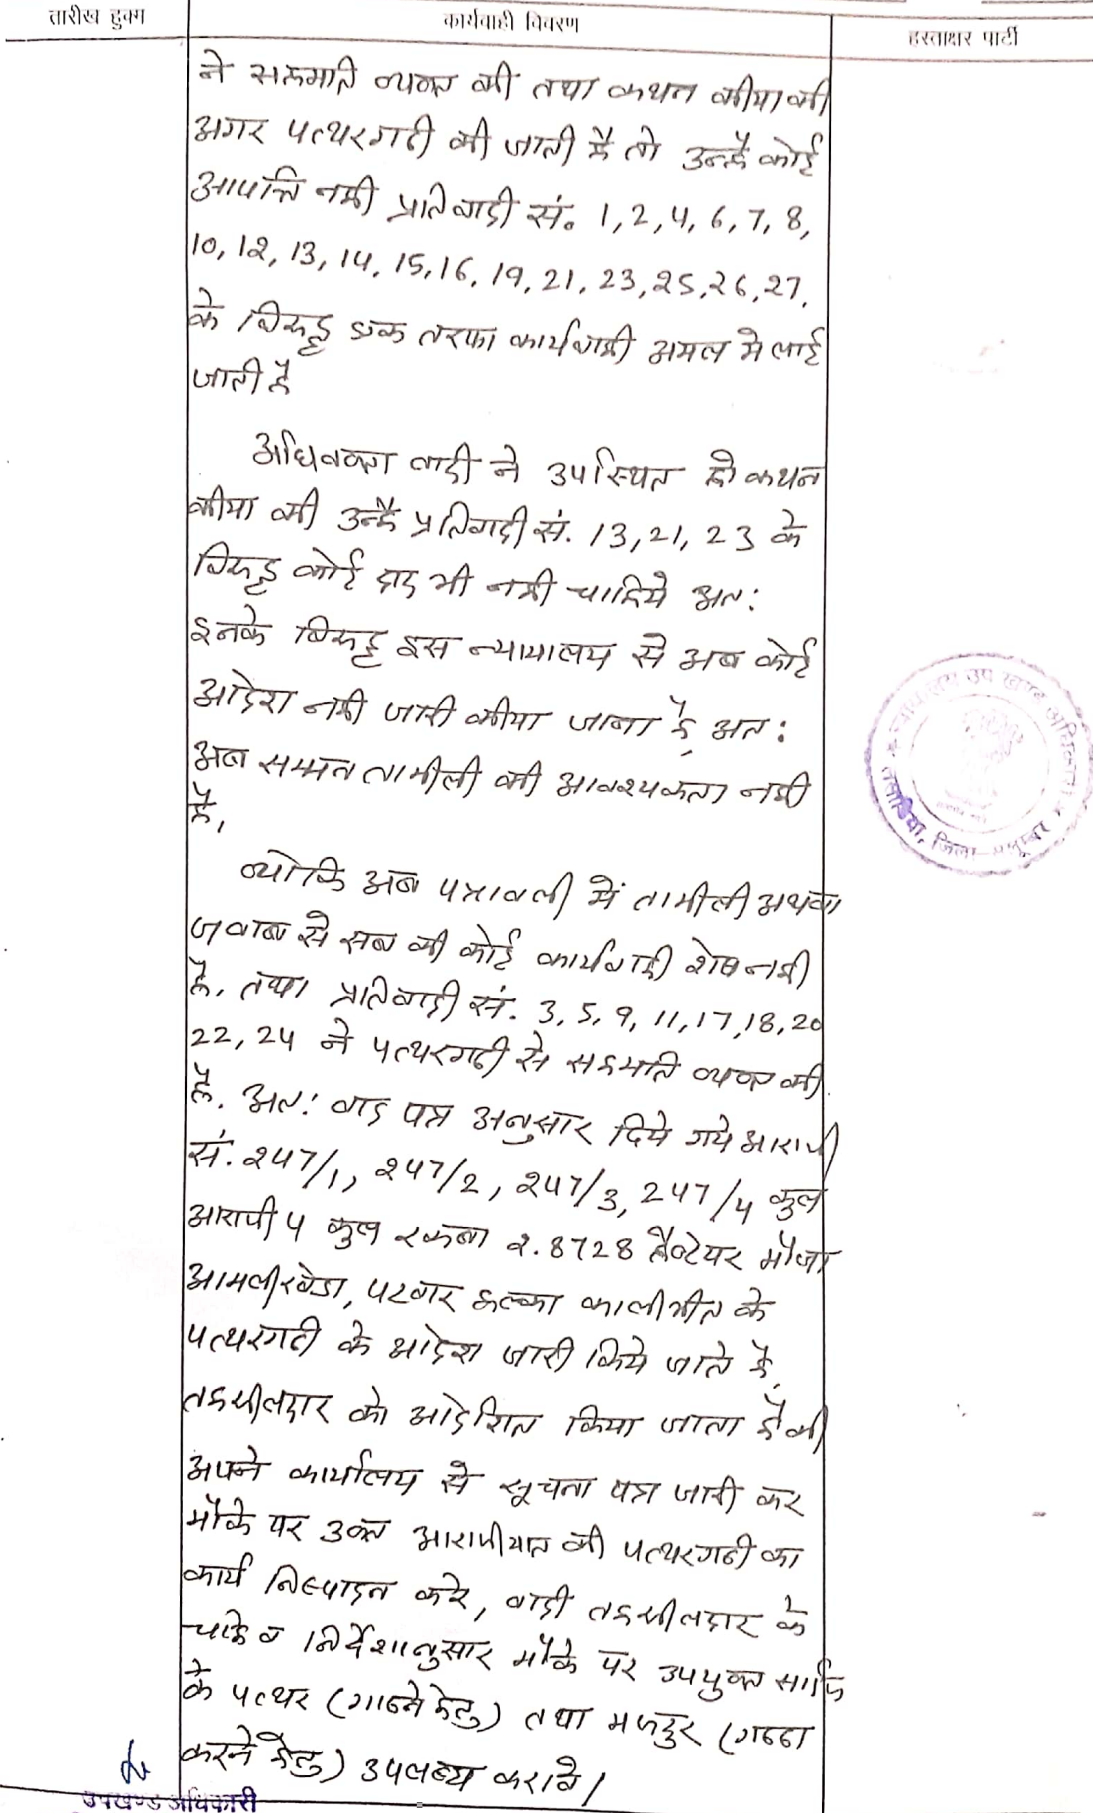 तारीख हुक्म
कार्यवाही विवरण
हस्ताक्षर पार्टी
ने सहमति व्यक्त की तथा कथन कीया की
अगर पत्थरगढी की जाती है तो उन्हें कोई
आपत्ति नही प्रतिवादी सं. 1, 2, 4, 6, 7, 8,
10, 12, 13, 14, 15, 16, 19, 21, 23, 25, 26, 27,
के विरुद्ध एक तरफा कार्यवाही अमल मे लाई
जाती है
अधिवक्ता वादी ने उपस्थित हो कथन
कीया की उन्हें प्रतिवादी सं. 13, 21, 23 के
विरुद्ध कोई दाद भी नही चाहिये अतः
इनके विरुद्ध इस न्यायालय से अब कोई
आदेश नही जारी कीया जाना है, अतः
अब सम्मन तामीली की आवश्यकता नही
है,
क्योकि अब पत्रावली में तामीली अथवा
जवाब से सब की कोई कार्यवाही शेष नही
है, तथा प्रतिवादी सं. 3, 5, 9, 11, 17, 18, 20
22, 24 ने पत्थरगढी से सहमति व्यक्त की
है. अतः वाद पत्र अनुसार दिये गये आराजी
सं. 247/1, 247/2, 247/3, 247/4 कुल
आराजी 4 कुल रकबा 2.8728 हैक्टेयर मौजा
आमलीखेडा, पटवार हल्का कालीभीत के
पत्थरगढी के आदेश जारी किये जाते है,
तहसीलदार को आदेशित किया जाता है की
अपने कार्यालय से सूचना पत्र जारी कर
मौके पर उक्त आराजीयात की पत्थरगढी का
कार्य निष्पादन करे, वादी तहसीलदार के
चाहे व निर्देशानुसार मौके पर उपयुक्त
के पत्थर (गाडने हेतु) तथा मजदुर (गड्डा
करने हेतु) उपलब्ध करावे।
उपखण्ड अधिकारी
न्यायालय उप खण्ड अधिकारी
जिला-सलूम्बर